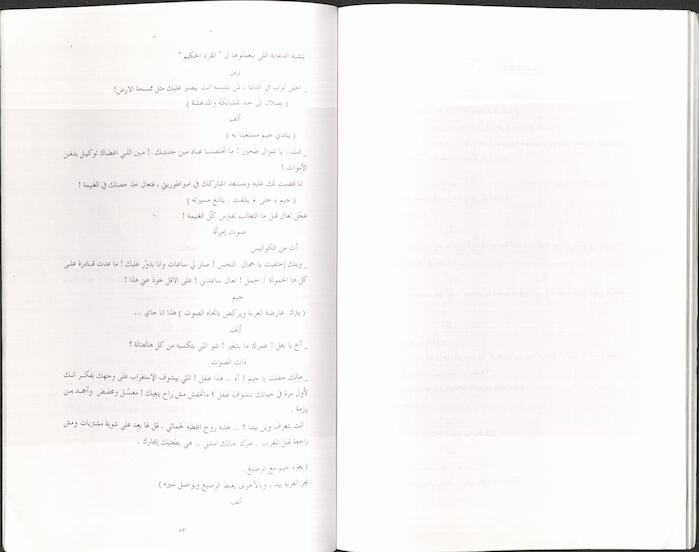 بتشبه الدعاية اللي بيعملوها ل " القرد الحكيم "
زين
_ احلى ثوب في الدنيا ، لمن بتلبسه انت بيصير عليك مثل ممسحة الارض!
( يصلان الى حد المشابكة والمدافشة )
ألف
( ينادي جيم مستعينا به )
_ انت.. يا شوال طحين ! ما تخلصنا عاد من حديثك ! مين اللي اعطاك توكيل بدفن
الأموات !
انا قضيت لك عليه ومستعد اشاركك في امبراطوريتي ، فتعال خذ حصتك في الغنيمة !
( جيم ، حتى لم يلتفت . يتابع مسيرته )
عجّل تعال قبل ما الثعالب تفترس كلّ الغنيمة !
صوت إمرأة
أت من الكواليس
_ وينك إختفيت يا جمال النحس ! صار لي ساعات وانا بدوّر عليك ! ما عدت قادرة على
كل ها الحمولة / الحمل ! تعال ساعدني ! على الاقل خوذ عني هذا !
جيم
( يترك عارضة العربة ويركض باتجاه الصوت ) هذا انا جاي ...
ألف
_ أخ يا بغل ! عمرك ما بتتغير ! شو اللي بتكسبه من كل هالعتالة ؟
ذات الصوت
_ مالك جفلت يا جيم ! أه .. هذا طفل ! اللي بيشوف الإستغراب على وجهك بفكر انك
لأول مرة في حياتك بتشوف طفل ! ماتخفش مش راح يتعبك ! مغسّل ومحفض وأجمد من
رزمة .
انت بتعرف وين بيتنا ؟ .. خذه روح اعطيه لحماتي . قل لها بعد علي شوية مشتريات ومش
راجعة قبل المغرب . حرّك حالك امشي .. هي بطعتيك إيجارك .
( يعود جيم مع الرضيع .
يجر العربة بيد ، وبالأخرى يضبط الرضيع ويواصل سيره )
ألف
٥٣